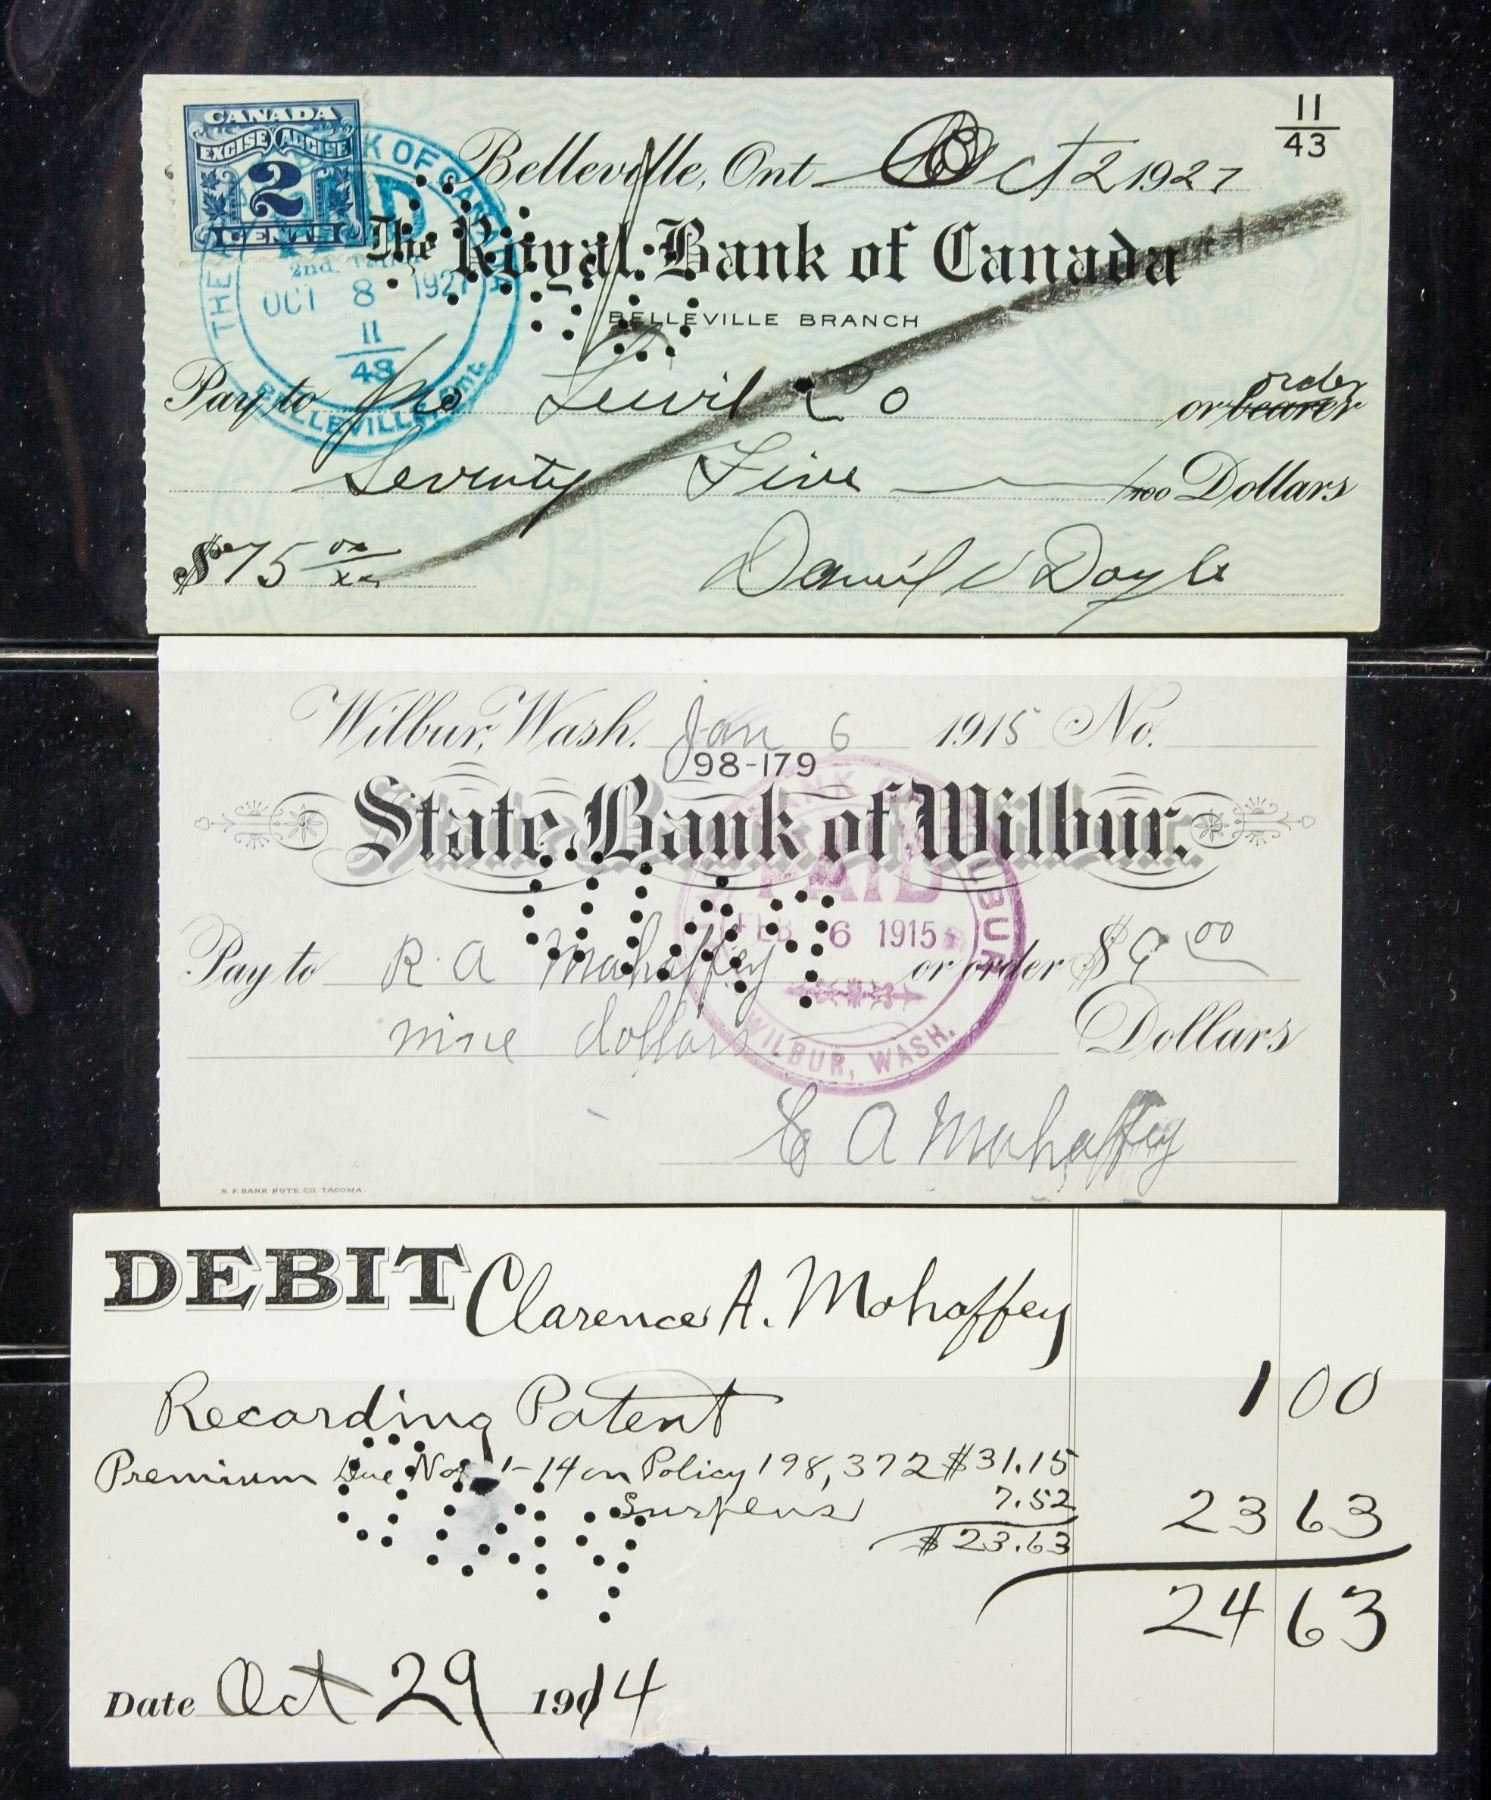 CANADA
EXCISE ACCISE
2
CENTS
11
43
Belleville, Ont. Oct 2 1927
The Royal Bank of Canada
BELLEVILLE BRANCH
2nd.
OCT 8 1927
11
43
BELLEVILLE, Ont.
Pay to Co or bearer order
Seventy Five /100 Dollars
$75 00/xx
Daniel V Doyle
Wilbur, Wash. Jan 6 1915 No.
98-179
State Bank of Wilbur.
PAID
FEB 6 1915
WILBUR, WASH.
Pay to R A Mahaffey or order $9 00
nine dollars Dollars
C A Mahaffey
N. P. BANK NOTE CO. TACOMA.
DEBIT Clarence A. Mohaffey
Recording Patent 1 00
Premium Due Nov 1-14 on Policy 198,372 $31.15
Suspens 7.52 23 63
$23.63
24 63
Date Oct 29 1914